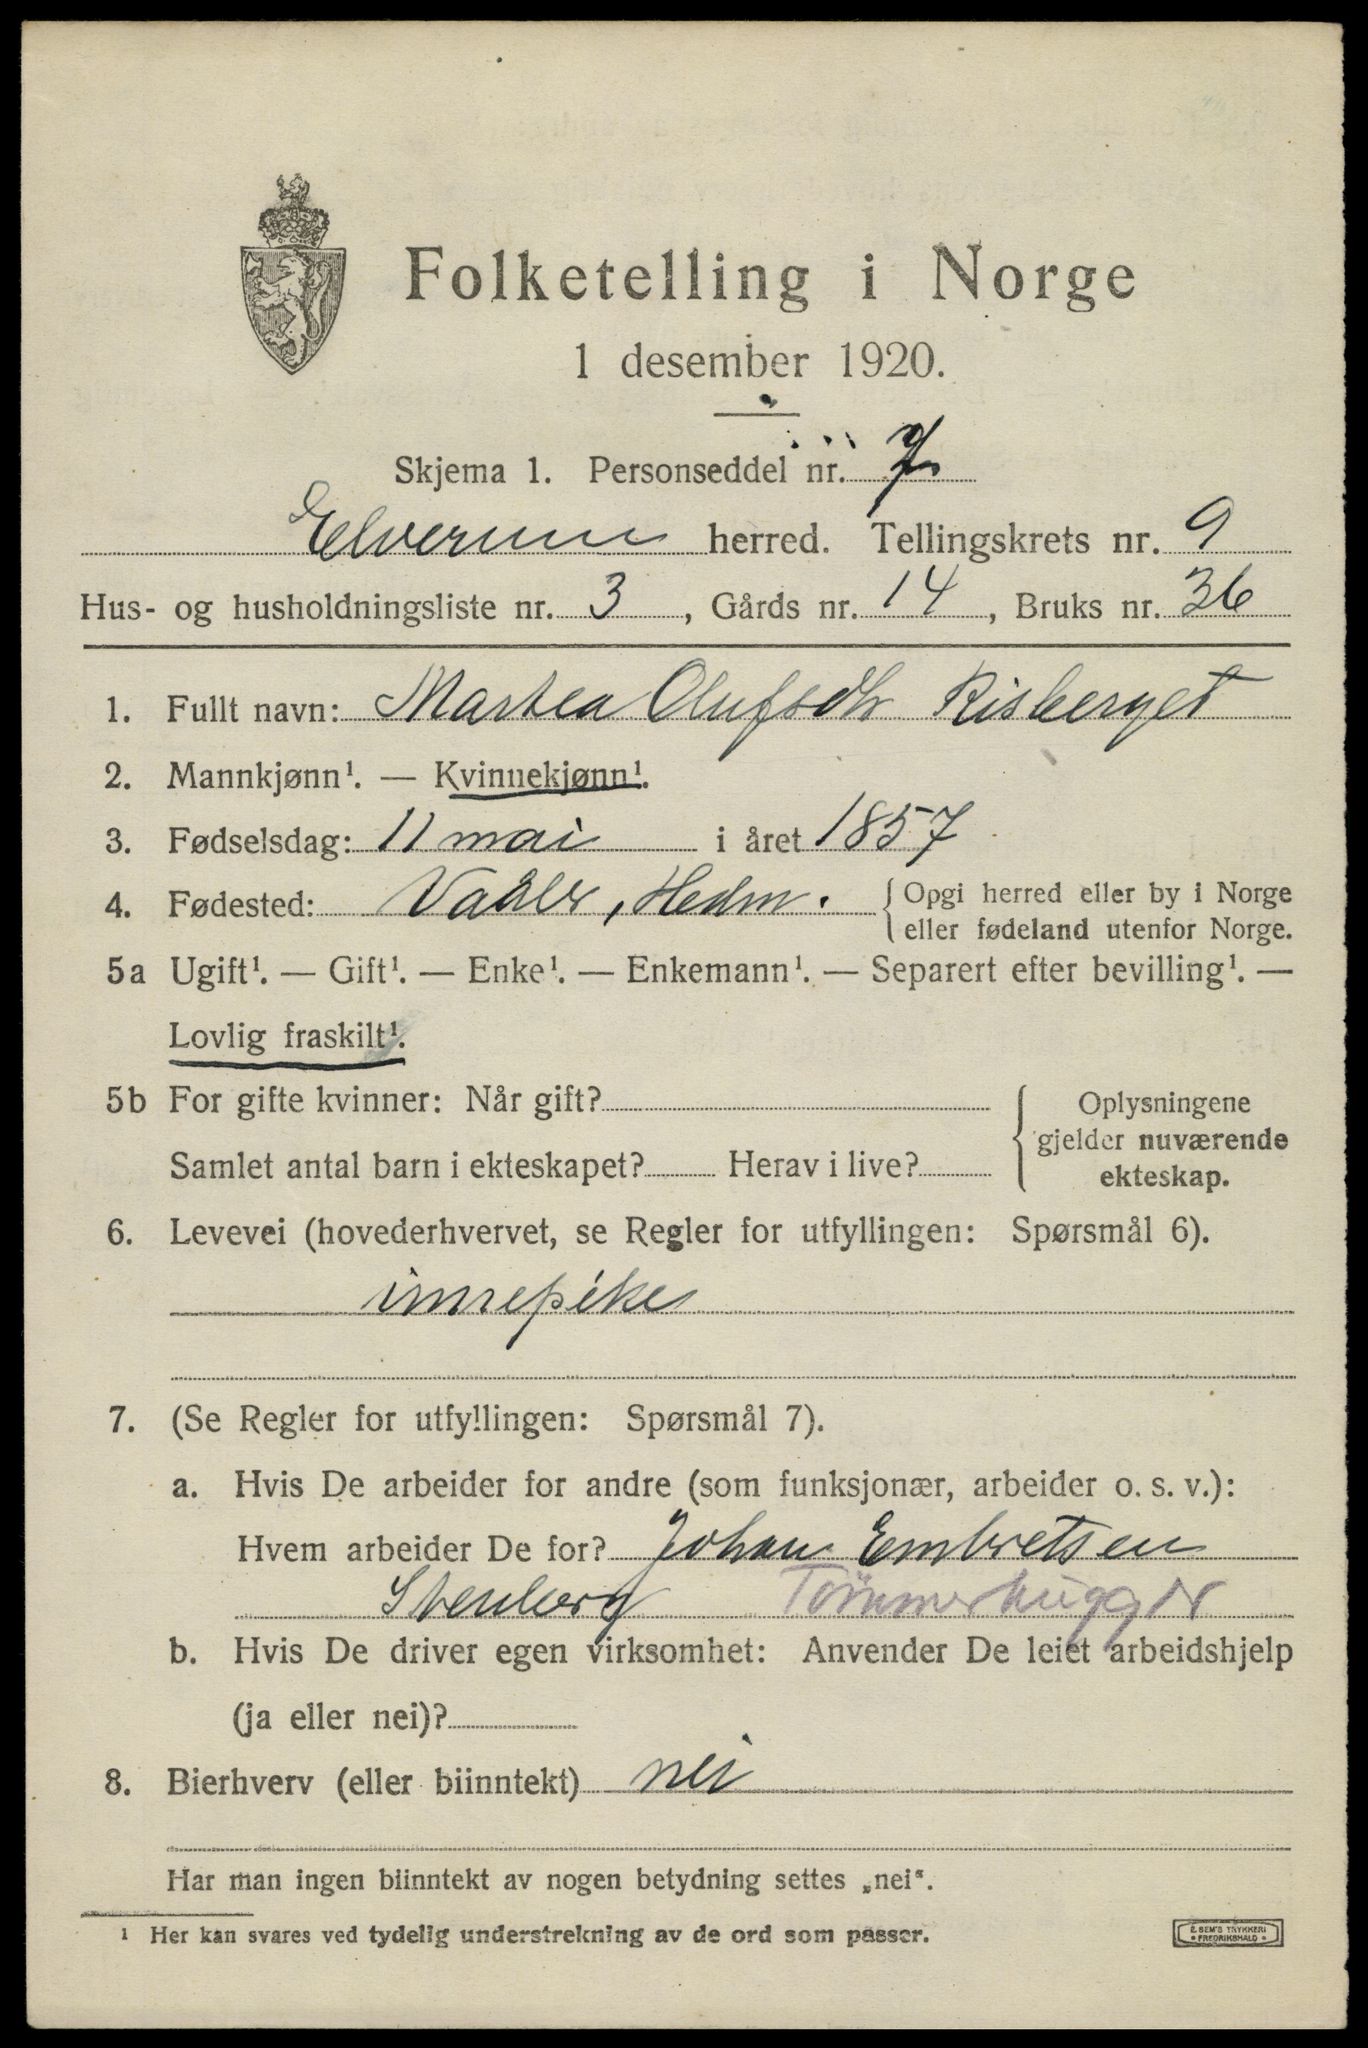 Folketelling i Norge
1 desember 1920.
Skjema 1. Personseddel nr. 7
Elverum herred. Tellingskrets nr. 9
Hus- og husholdningsliste nr. 3, Gårds nr. 14, Bruks nr. 36
1. Fullt navn: Martea Olufsdtr Risberget
2. Mannkjønn¹. — Kvinnekjønn¹.
3. Fødselsdag: 11 mai i året 1857
4. Fødested: Vaaler, Hedm. { Opgi herred eller by i Norge
eller fødeland utenfor Norge.
5a Ugift¹. — Gift¹. — Enke¹. — Enkemann¹. — Separert efter bevilling¹. —
Lovlig fraskilt¹.
5b For gifte kvinner: Når gift?
Samlet antal barn i ekteskapet? Herav i live?
Oplysningene
gjelder nuværende
ekteskap.
6. Levevei (hovederhvervet, se Regler for utfyllingen: Spørsmål 6).
innepike
7. (Se Regler for utfyllingen: Spørsmål 7).
a. Hvis De arbeider for andre (som funksjonær, arbeider o. s. v.):
Hvem arbeider De for? Johan Embretsen
Stenberg Tømmerhugger
b. Hvis De driver egen virksomhet: Anvender De leiet arbeidshjelp
(ja eller nei)?
8. Bierhverv (eller biinntekt) nei
Har man ingen biinntekt av nogen betydning settes „nei“.
¹ Her kan svares ved tydelig understrekning av de ord som passer.
E. SEM'S TRYKKERI
* FREDRIKSHALD *